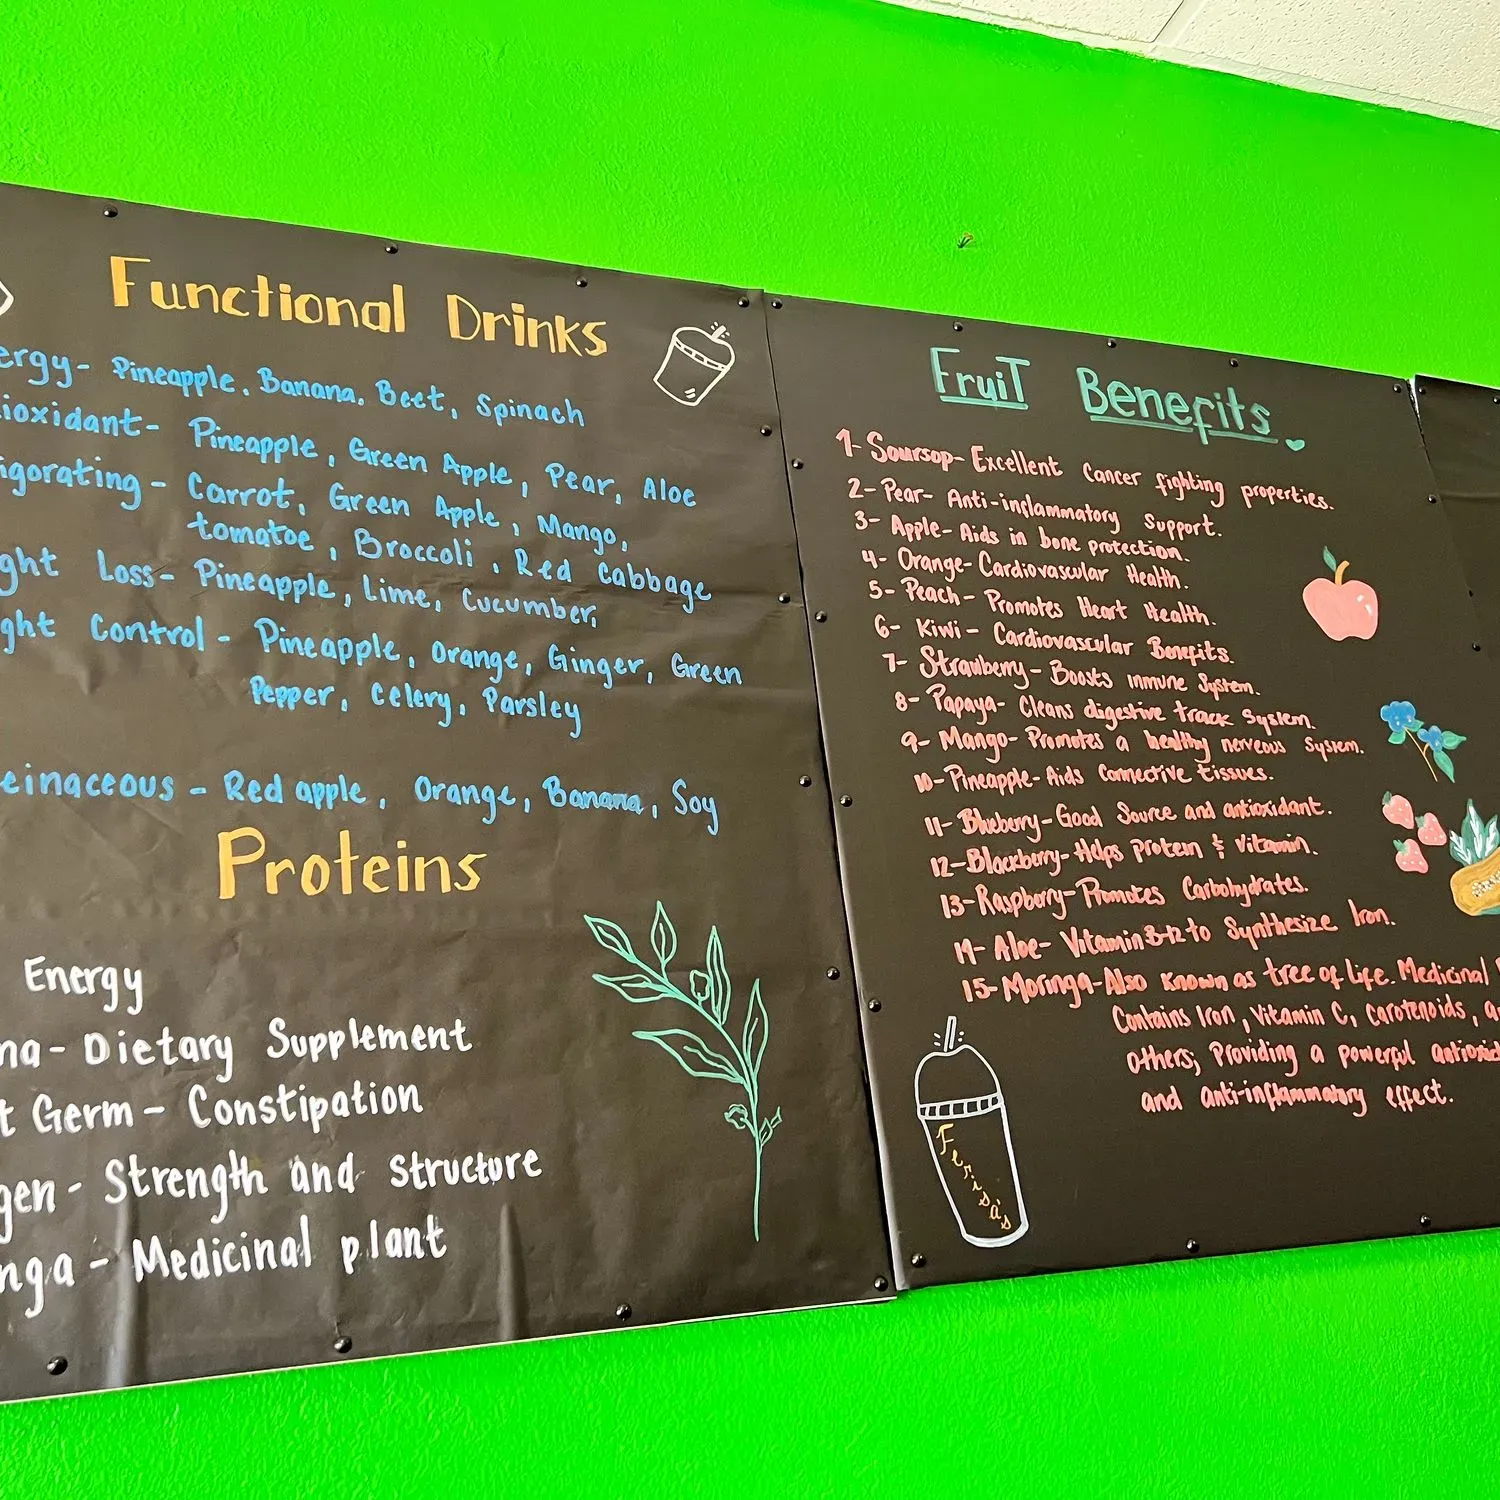 Functional Drinks
ergy- Pineapple, Banana, Beet, Spinach
ioxidant- Pineapple, Green Apple, Pear, Aloe
igorating- Carrot, Green Apple, Mango,
tomatoe, Broccoli, Red Cabbage
ght Loss- Pineapple, Lime, Cucumber,
ght Control- Pineapple, Orange, Ginger, Green
Pepper, Celery, Parsley
einaceous- Red apple, Orange, Banana, Soy
Proteins
Energy
na- Dietary Supplement
t Germ- Constipation
gen- Strength and structure
nga- Medicinal plant
Fruit Benefits
1- Soursop- Excellent Cancer fighting properties.
2- Pear- Anti-inflammatory Support.
3- Apple- Aids in bone protection.
4- Orange- Cardiovascular Health.
5- Peach- Promotes Heart Health.
6- Kiwi- Cardiovascular Benefits.
7- Strawberry- Boosts immune System.
8- Papaya- Cleans digestive track System.
9- Mango- Promotes a healthy nervous System.
10- Pineapple- Aids Connective tissues.
11- Blueberry- Good Source and antioxidant.
12- Blackberry- Helps protein & Vitamin.
13- Raspberry- Promotes Carbohydrates.
14- Aloe- Vitamin B-12 to Synthesize Iron.
15- Moringa- Also known as tree of Life. Medicinal
Contains Iron, Vitamin C, carotenoids, a
others; Providing a powerful antioxid
and anti-inflammatory effect.
Ferisa's